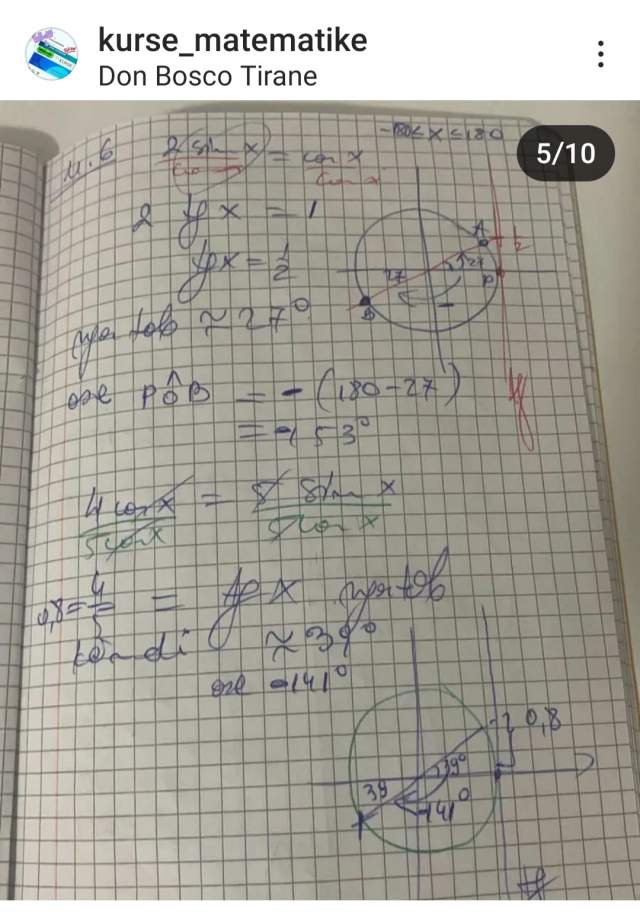 kurse_matematike
Don Bosco Tirane
5/10
U.6 2 sin x / cos x = cos x / cos x
-180 ≤ x ≤ 180
2 tg x = 1
tg x = 1/2
A 1/2
27 27 P
B
≈ 27°
ose PÔB = -(180-27)
= -153°
tg
4 cos x / 5 cos x = 5 sin x / 5 cos x
0,8 = 4/5 = tg x
këndi ≈ 39°
ose -141°
0,8
39 39°
-141°
tg